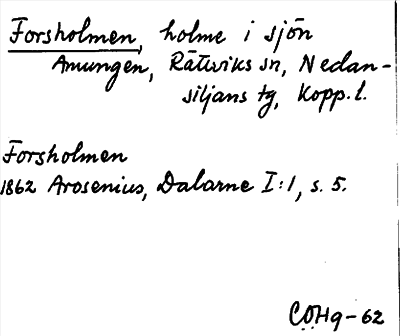 Forsholmen, holme i sjön
Amungen, Rättviks sn, Nedan-
siljans tg, Kopp. l.
Forsholmen
1862 Arosenius, Dalarne I:1, s. 5.
COHg-62